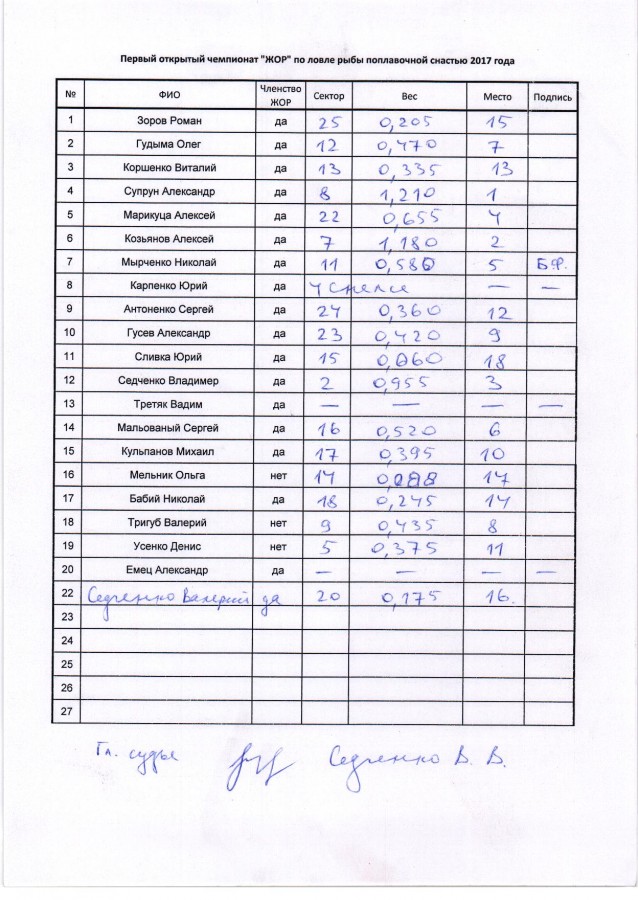 Первый открытый чемпионат "ЖОР" по ловле рыбы поплавочной снастью 2017 года
№ ФИО Членство ЖОР Сектор Вес Место Подпись
1 Зоров Роман да 25 0,205 15
2 Гудыма Олег да 12 0,470 7
3 Коршенко Виталий да 13 0,335 13
4 Супрун Александр да 8 1,210 1
5 Марикуца Алексей да 22 0,655 4
6 Козьянов Алексей да 7 1,180 2
7 Мырченко Николай да 11 0,580 5 Б.Ф.
8 Карпенко Юрий да — —
9 Антоненко Сергей да 24 0,360 12
10 Гусев Александр да 23 0,420 9
11 Сливка Юрий да 15 0,060 18
12 Седченко Владимер да 2 0,955 3
13 Третяк Вадим да — — — —
14 Мальованый Сергей да 16 0,520 6
15 Кульпанов Михаил да 17 0,395 10
16 Мельник Ольга нет 14 17
17 Бабий Николай да 18 0,245 14
18 Тригуб Валерий нет 9 0,435 8
19 Усенко Денис нет 5 0,375 11
20 Емец Александр да — — — —
22 Седченко Валерий да 20 0,175 16.
23
24
25
26
27
Гл. судья Седченко В. В.